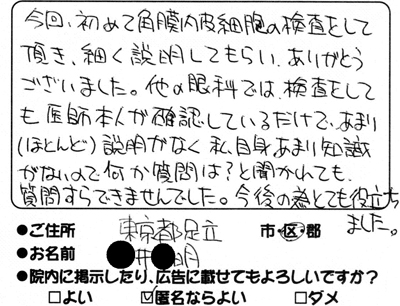 今回、初めて角膜内皮細胞の検査をして
頂き、細く説明してもらい、ありがとう
ございました。他の眼科では、検査をして
も医師本人が確認しているだけで、あまり
(ほとんど)説明がなく私、自身あまり知識
がないので何か質問は?と聞かれても、
質問すらできませんでした。今後の為とても役立ち
ました。
●ご住所 東京都足立 市・区・郡
●お名前 井 明
●院内に掲示したり、広告に載せてもよろしいですか?
□よい ☑匿名ならよい □ダメ